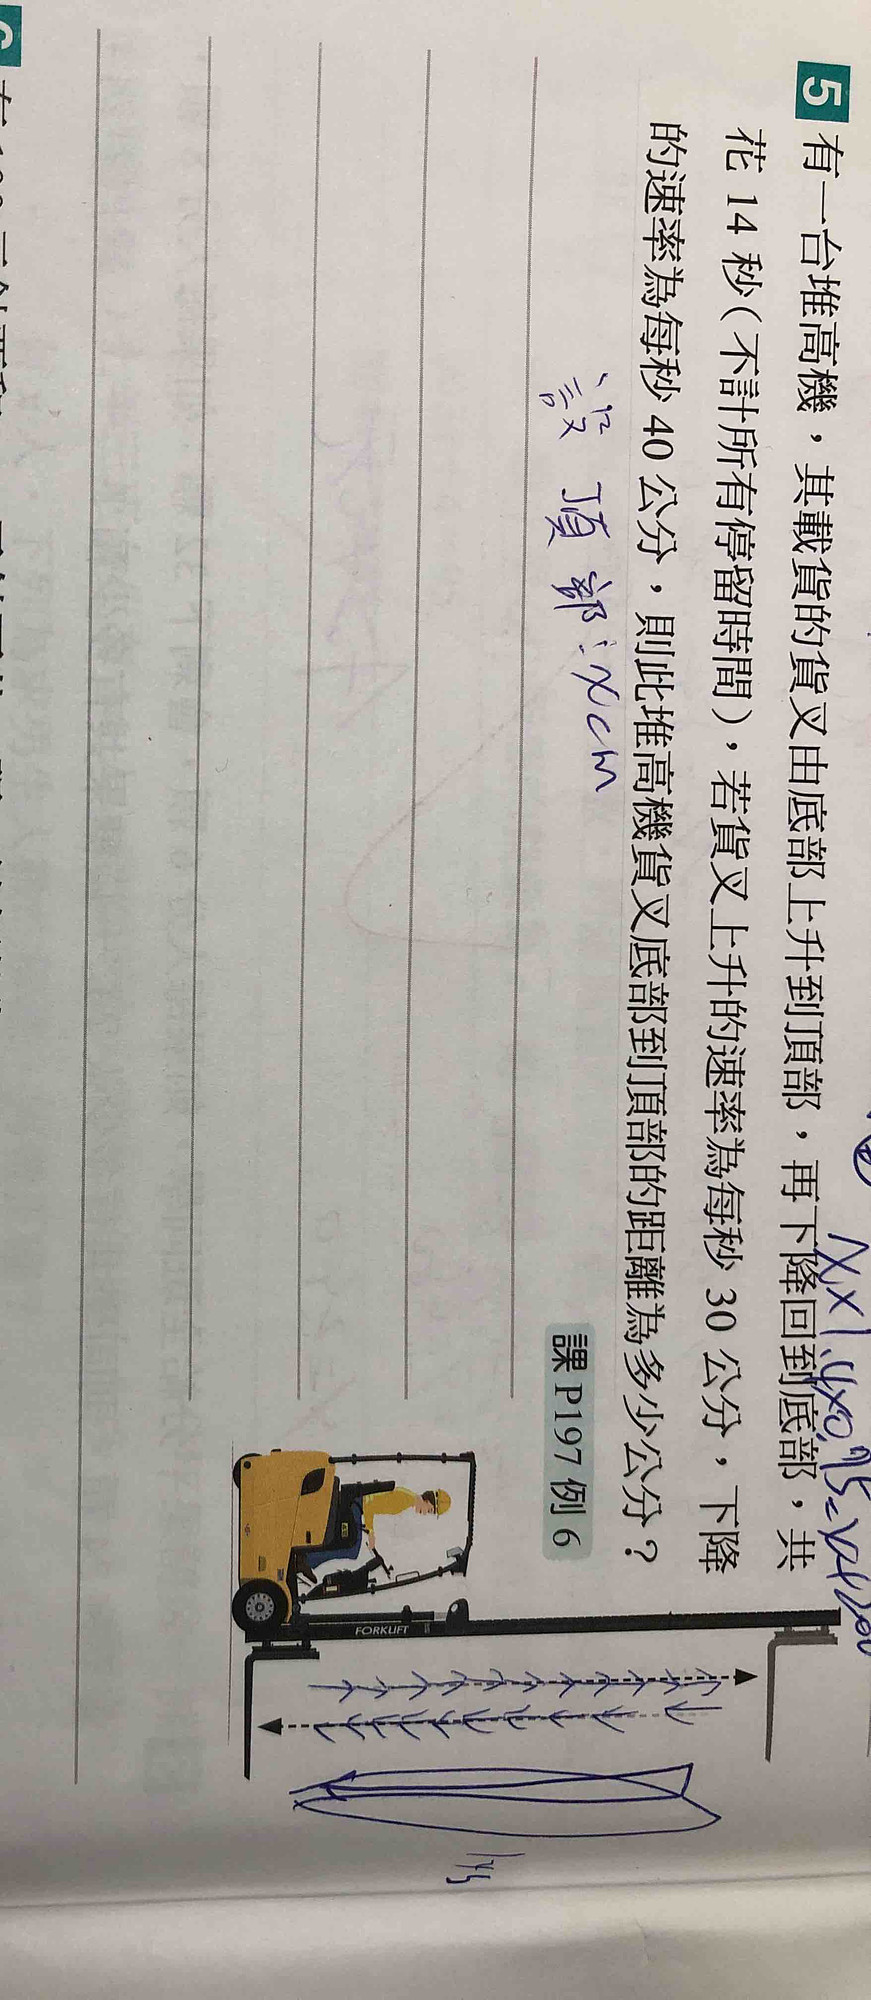 5 有一台堆高機，其載貨的貨叉由底部上升到頂部，再下降回到底部，共
花 14 秒（不計所有停留時間），若貨叉上升的速率為每秒 30 公分，下降
的速率為每秒 40 公分，則此堆高機貨叉底部到頂部的距離為多少公分？
課 P197 例 6
設頂部：xcm
FORKLIFT
14s
6